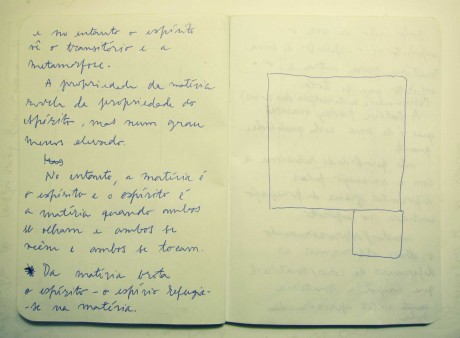 e no entanto o espírito
vê o transitório e a
metamorfose.
A propriedade da matéria
é propriedade do
espírito, mas num grau
menos elevado.
No entanto, a matéria é
o espírito e o espírito é
a matéria quando ambos
se olham e ambos se
veem e ambos se tocam.
* Da matéria brota
o espírito - o espírio refugia-
-se na matéria.